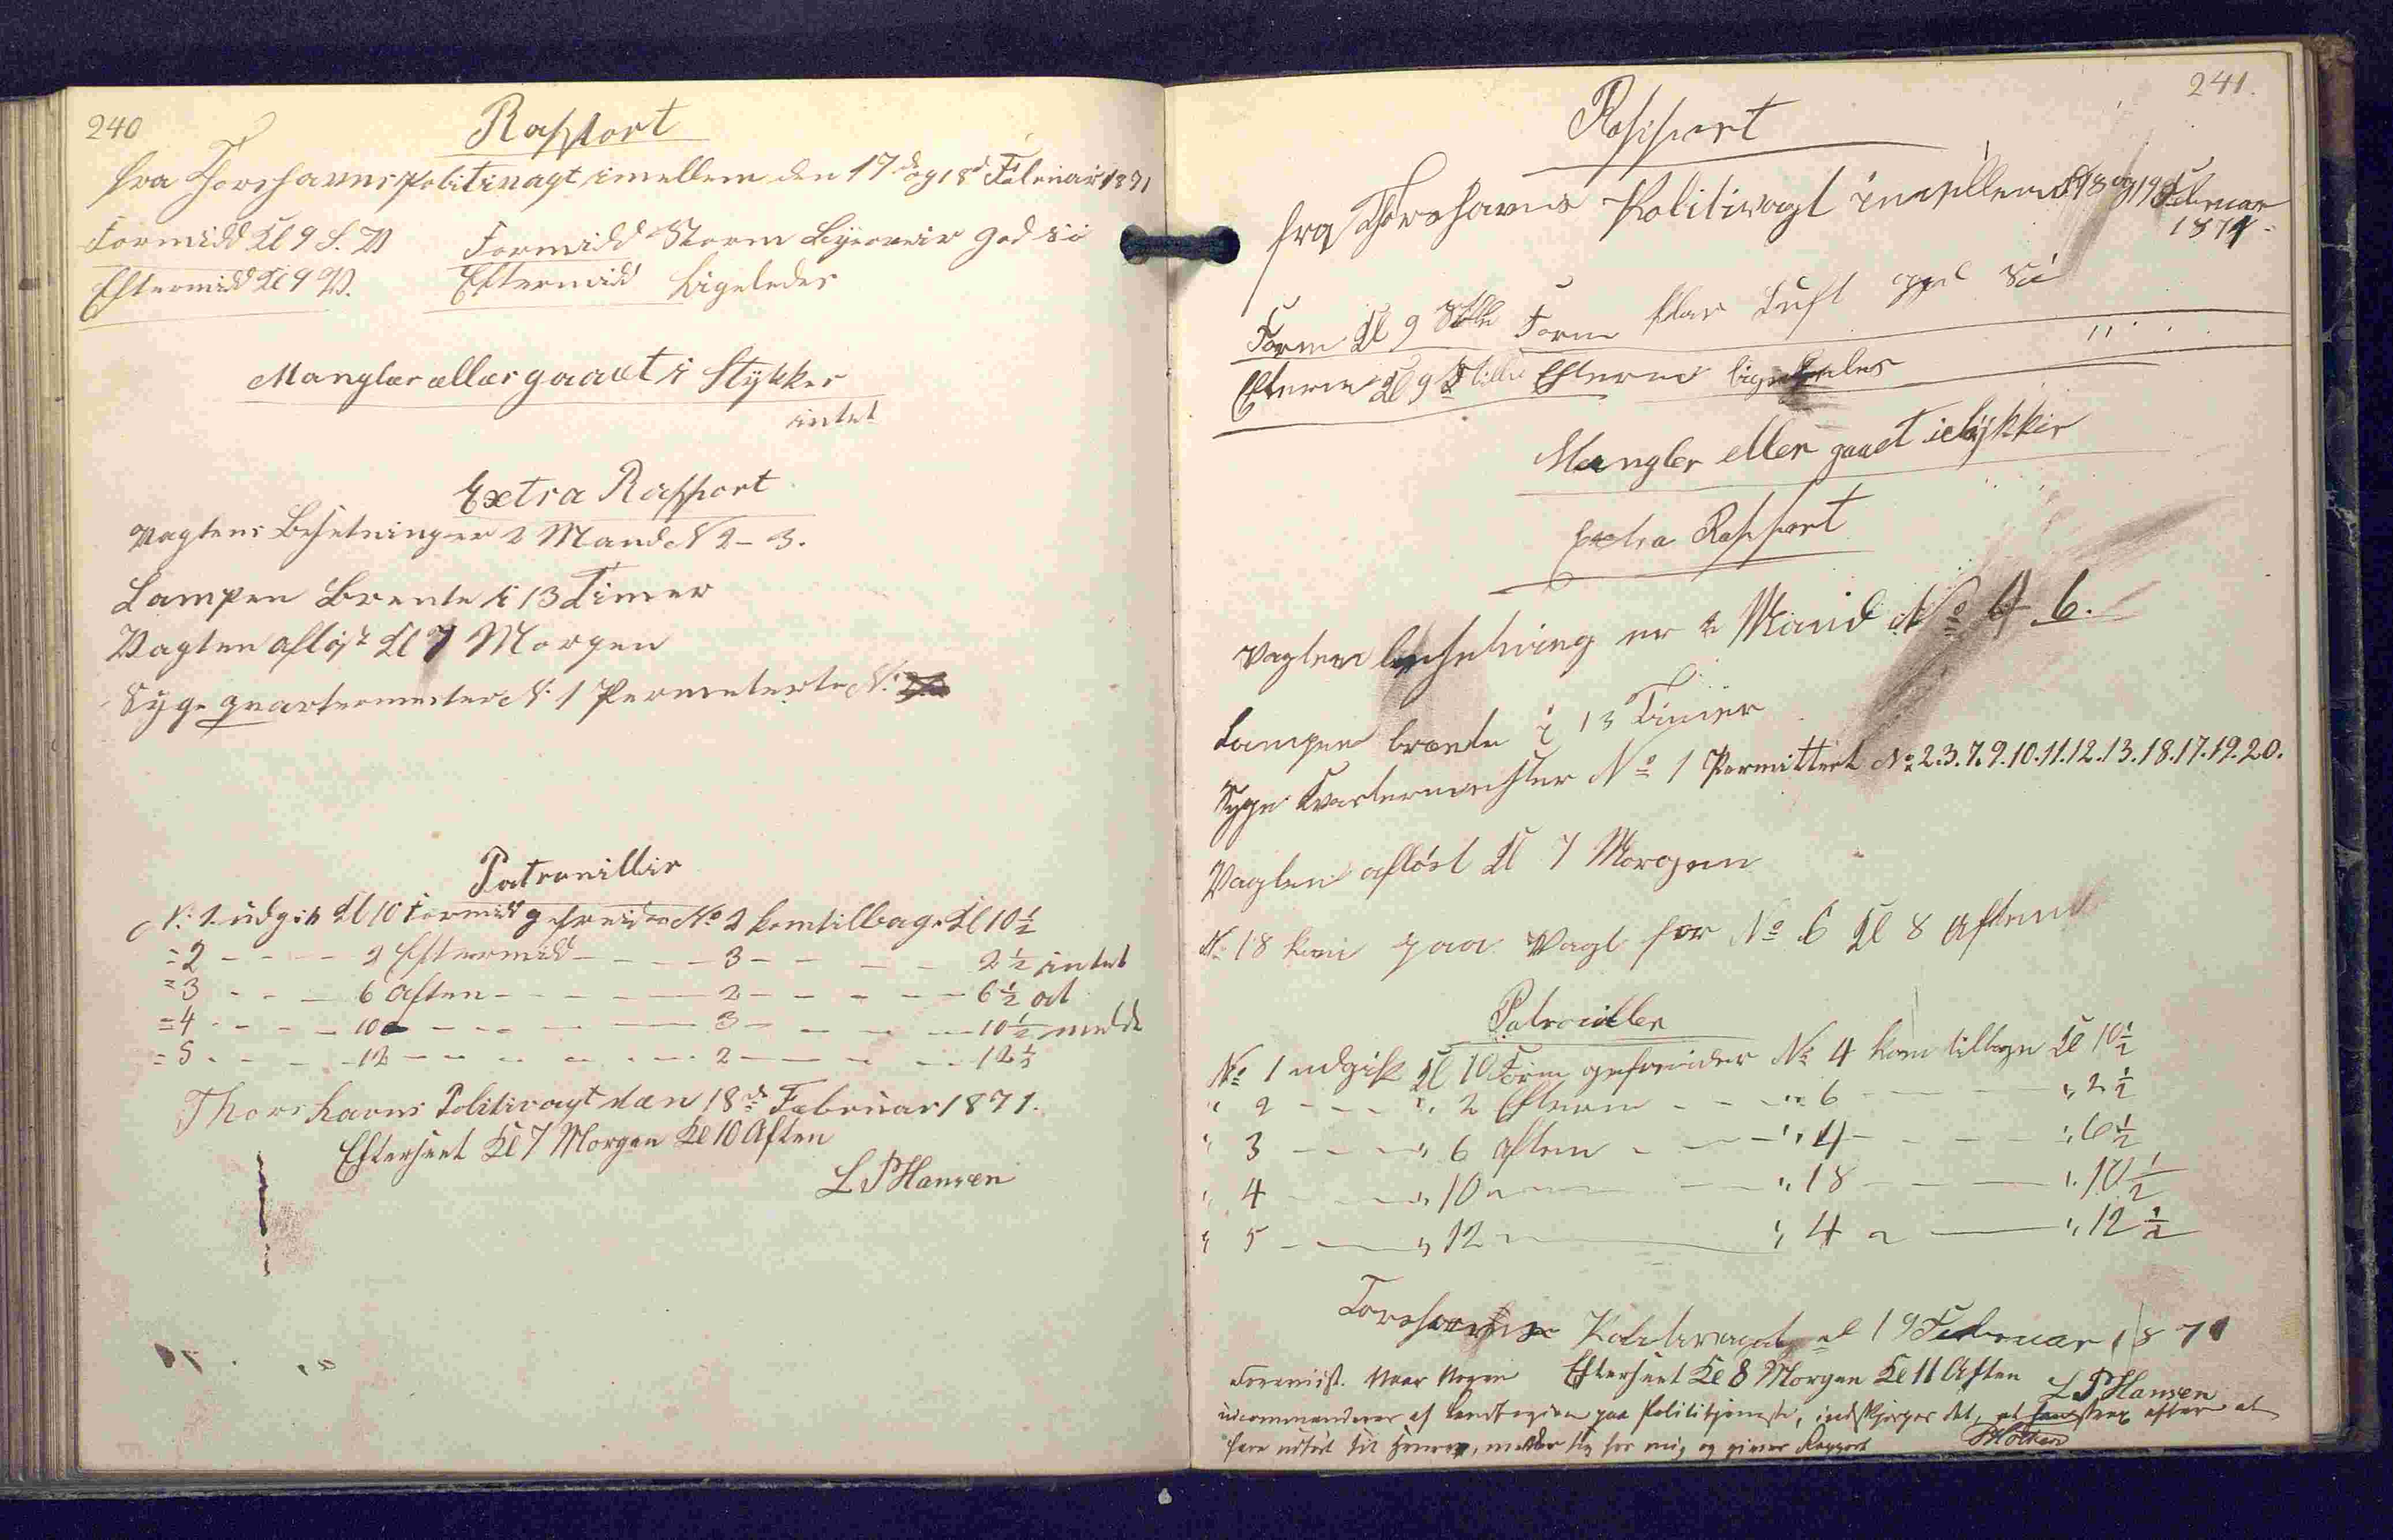 240
Rapport
fra Thorshavns Politivagt imellem den 17de og 18de Februar 1871
Formidd Kl 9 S. V Formidd Storm Byeveir god Sö
Eftermidd Kl 9 V. Eftermidd Ligeledes
Manglar ællar gaaet i Stykker
intet
Extra Rapport
Vagtens Besetning er 2 Mand N 2-3.
Lampen Brente i 13 Timer
Vagten afløst Kl 7 Morgen
Syge quartermester N. 1 Permeterte N.
Patrouillir
N. 1 udgik Kl 10 Formidd gefreider No 2 kom tilbage Kl 10 1/2
= 2 - - - 2 Eftermidd - - - 3 - - - 2 1/2 intet
= 3 - - - 6 Aften - - - 2 - - - 6 1/2 at
= 4 - - - 10 - - - 3 - - - 10 1/2 melde
= 5 - - - 12 - - - 2 - - - 12 1/2
Thorshavns Politivagt den 18de Februar 1871.
Efterseet Kl 7 Morgen Kl 10 Aften
L P Hansen
241.
Rapport
fra Thorshavns Politivagt imellem d 18 og 19 Februar
1871.
Form Kl 9 Stille Form klar Luft god Sö
Efterm Kl 9 Stille Efterm ligeledes
Mangler eller gaaet i stykkir
Extra Rapport
Vagten besetning er 2 Mand No 4 6.
Lampen brænte i 13 Timer
Syge Kvartermester No 1 Permittert No 2.3.7.9.10.11.12.13.18.17.19.20.
Vagten afløst Kl 7 Morgen
No 18 kom paa Vagt for No 6 Kl 8 Aften
Patrouiller
No 1 udgik Kl 10 Form gefreider No 4 kom tilbage Kl 10 1/2
" 2 - - - " 2 Efterm - - - " 6 - - - " 2 1/2
" 3 - - - " 6 Aften - - - " 4 - - - " 6 1/2
" 4 - - - " 10 - - - " 18 - - - " 10 1/2
" 5 - - - " 12 - - - " 4 - - - " 12 1/2
Torshavns Politivagt d 19 Februar 1871
Foreviist. Naar Nogen Efterseet Kl 8 Morgen Kl 11 Aften L P Hansen
udcommanderes af Landfogden paa Polititjeneste, indskjærpes det, at han strax efter at
have udført sit Hverv, melder sig for mig og giver Rapport